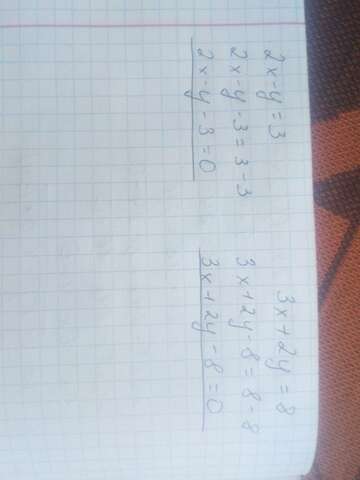 2x-y=3
2x-y-3=3-3
2x-y-3=0
3x+2y=8
3x+2y-8=8-8
3x+2y-8=0